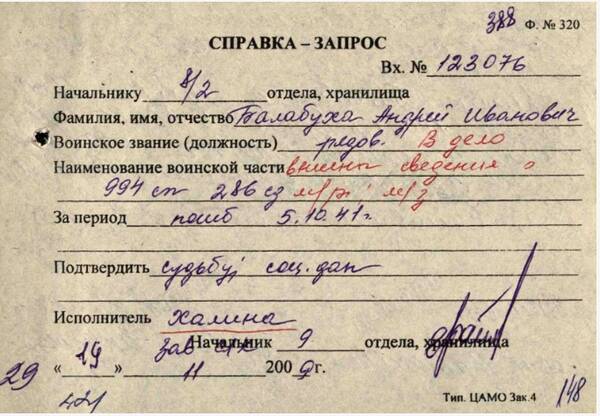 388 Ф. № 320
СПРАВКА – ЗАПРОС
Вх. № 123076
Начальнику 8/2 отдела, хранилища
Фамилия, имя, отчество Балабуха Андрей Иванович
Воинское звание (должность) рядов. В дело
Наименование воинской части внесены сведения о
994 сп 286 сд м/р и м/з
За период погиб 5.10.41г.
Подтвердить судьбу, соц.дан
Исполнитель Халина
Начальник 9 отдела, хранилища
29 « 19 » 11 200 г.
Тип. ЦАМО Зак.4 148